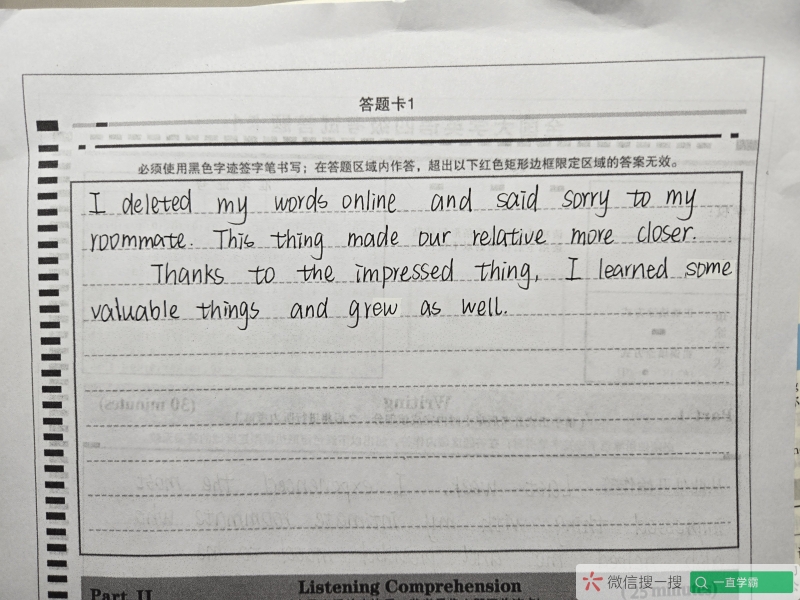 答题卡1
必须使用黑色字迹签字笔书写；在答题区域内作答，超出以下红色矩形边框限定区域的答案无效。
I deleted my words online and said sorry to my
roommate. This thing made our relative more closer.
Thanks to the impressed thing, I learned some
valuable things and grew as well.
Part II
Listening Comprehension
(25 minutes)
微信搜一搜
一直学霸